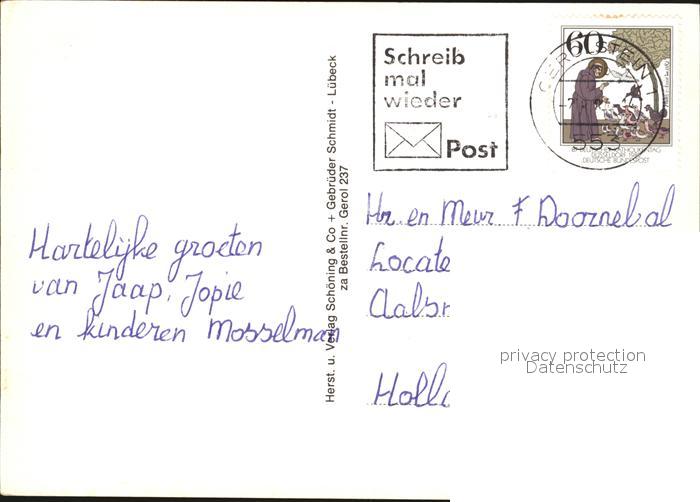 Hartelijke groeten
van Jaap, Jopie
en kinderen Mosselman
Herst. u. Verlag Schöning & Co + Gebrüder Schmidt - Lübeck
za Bestellnr. Gerol 237
Schreib
mal
wieder
Post
60
GEROLSTEIN 1
553
DÜSSELDORF 1982
DEUTSCHE BUNDESPOST
Hr. en Mevr F Doornebal
Locate
Aalsr
Holl
privacy protection
Datenschutz